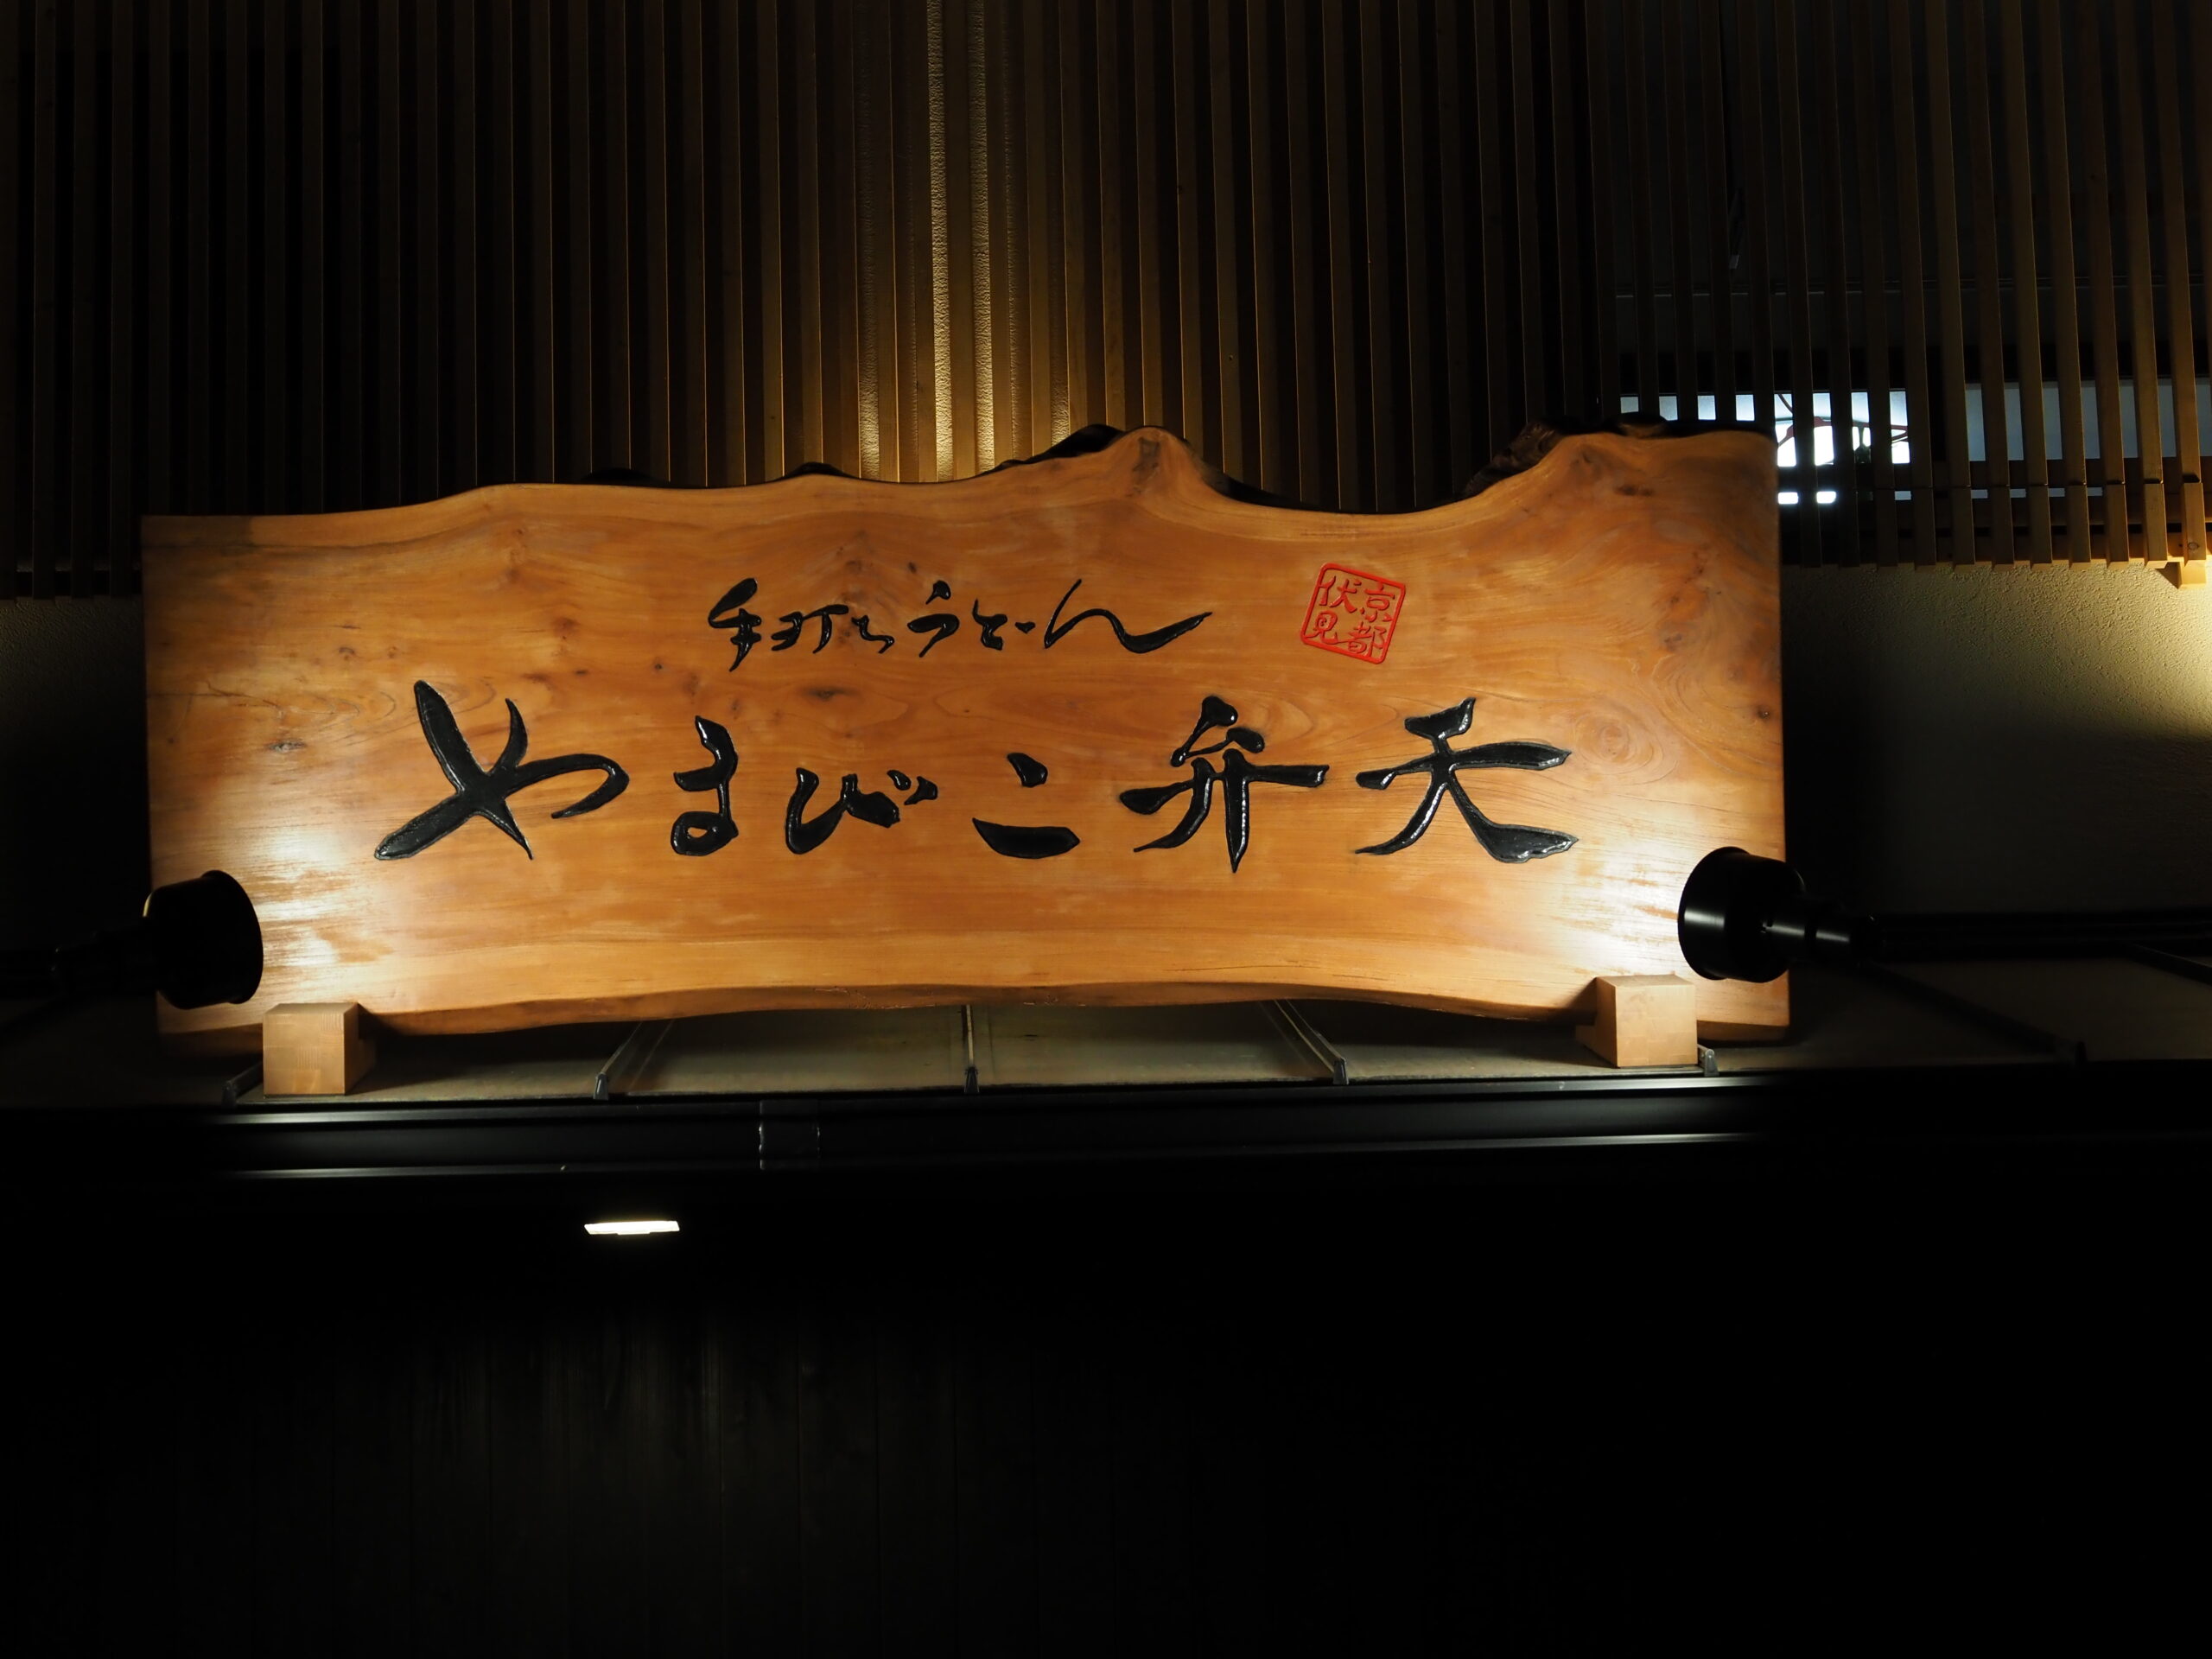 手打ちうどん
京都
伏見
やまびこ弁天